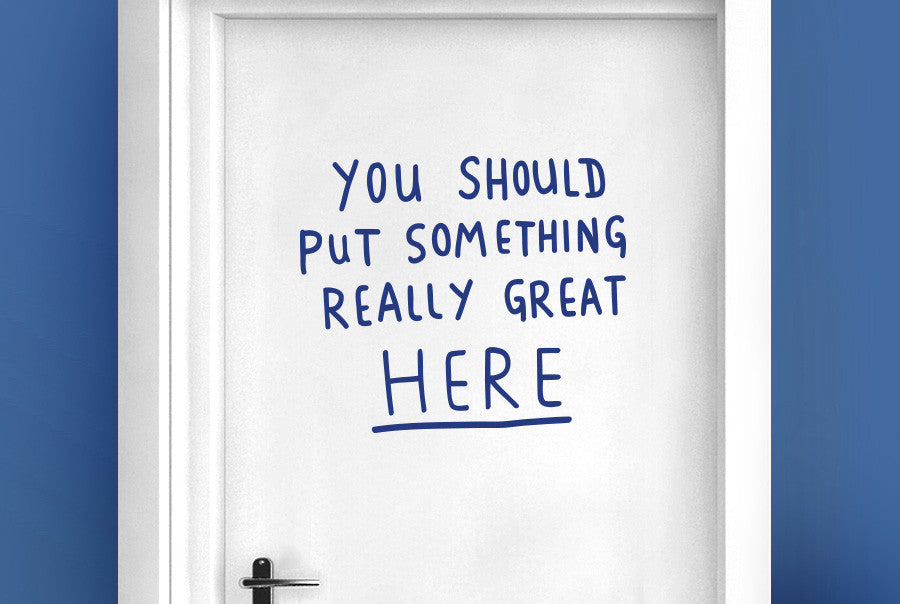 YOU SHOULD
PUT SOMETHING
REALLY GREAT
HERE